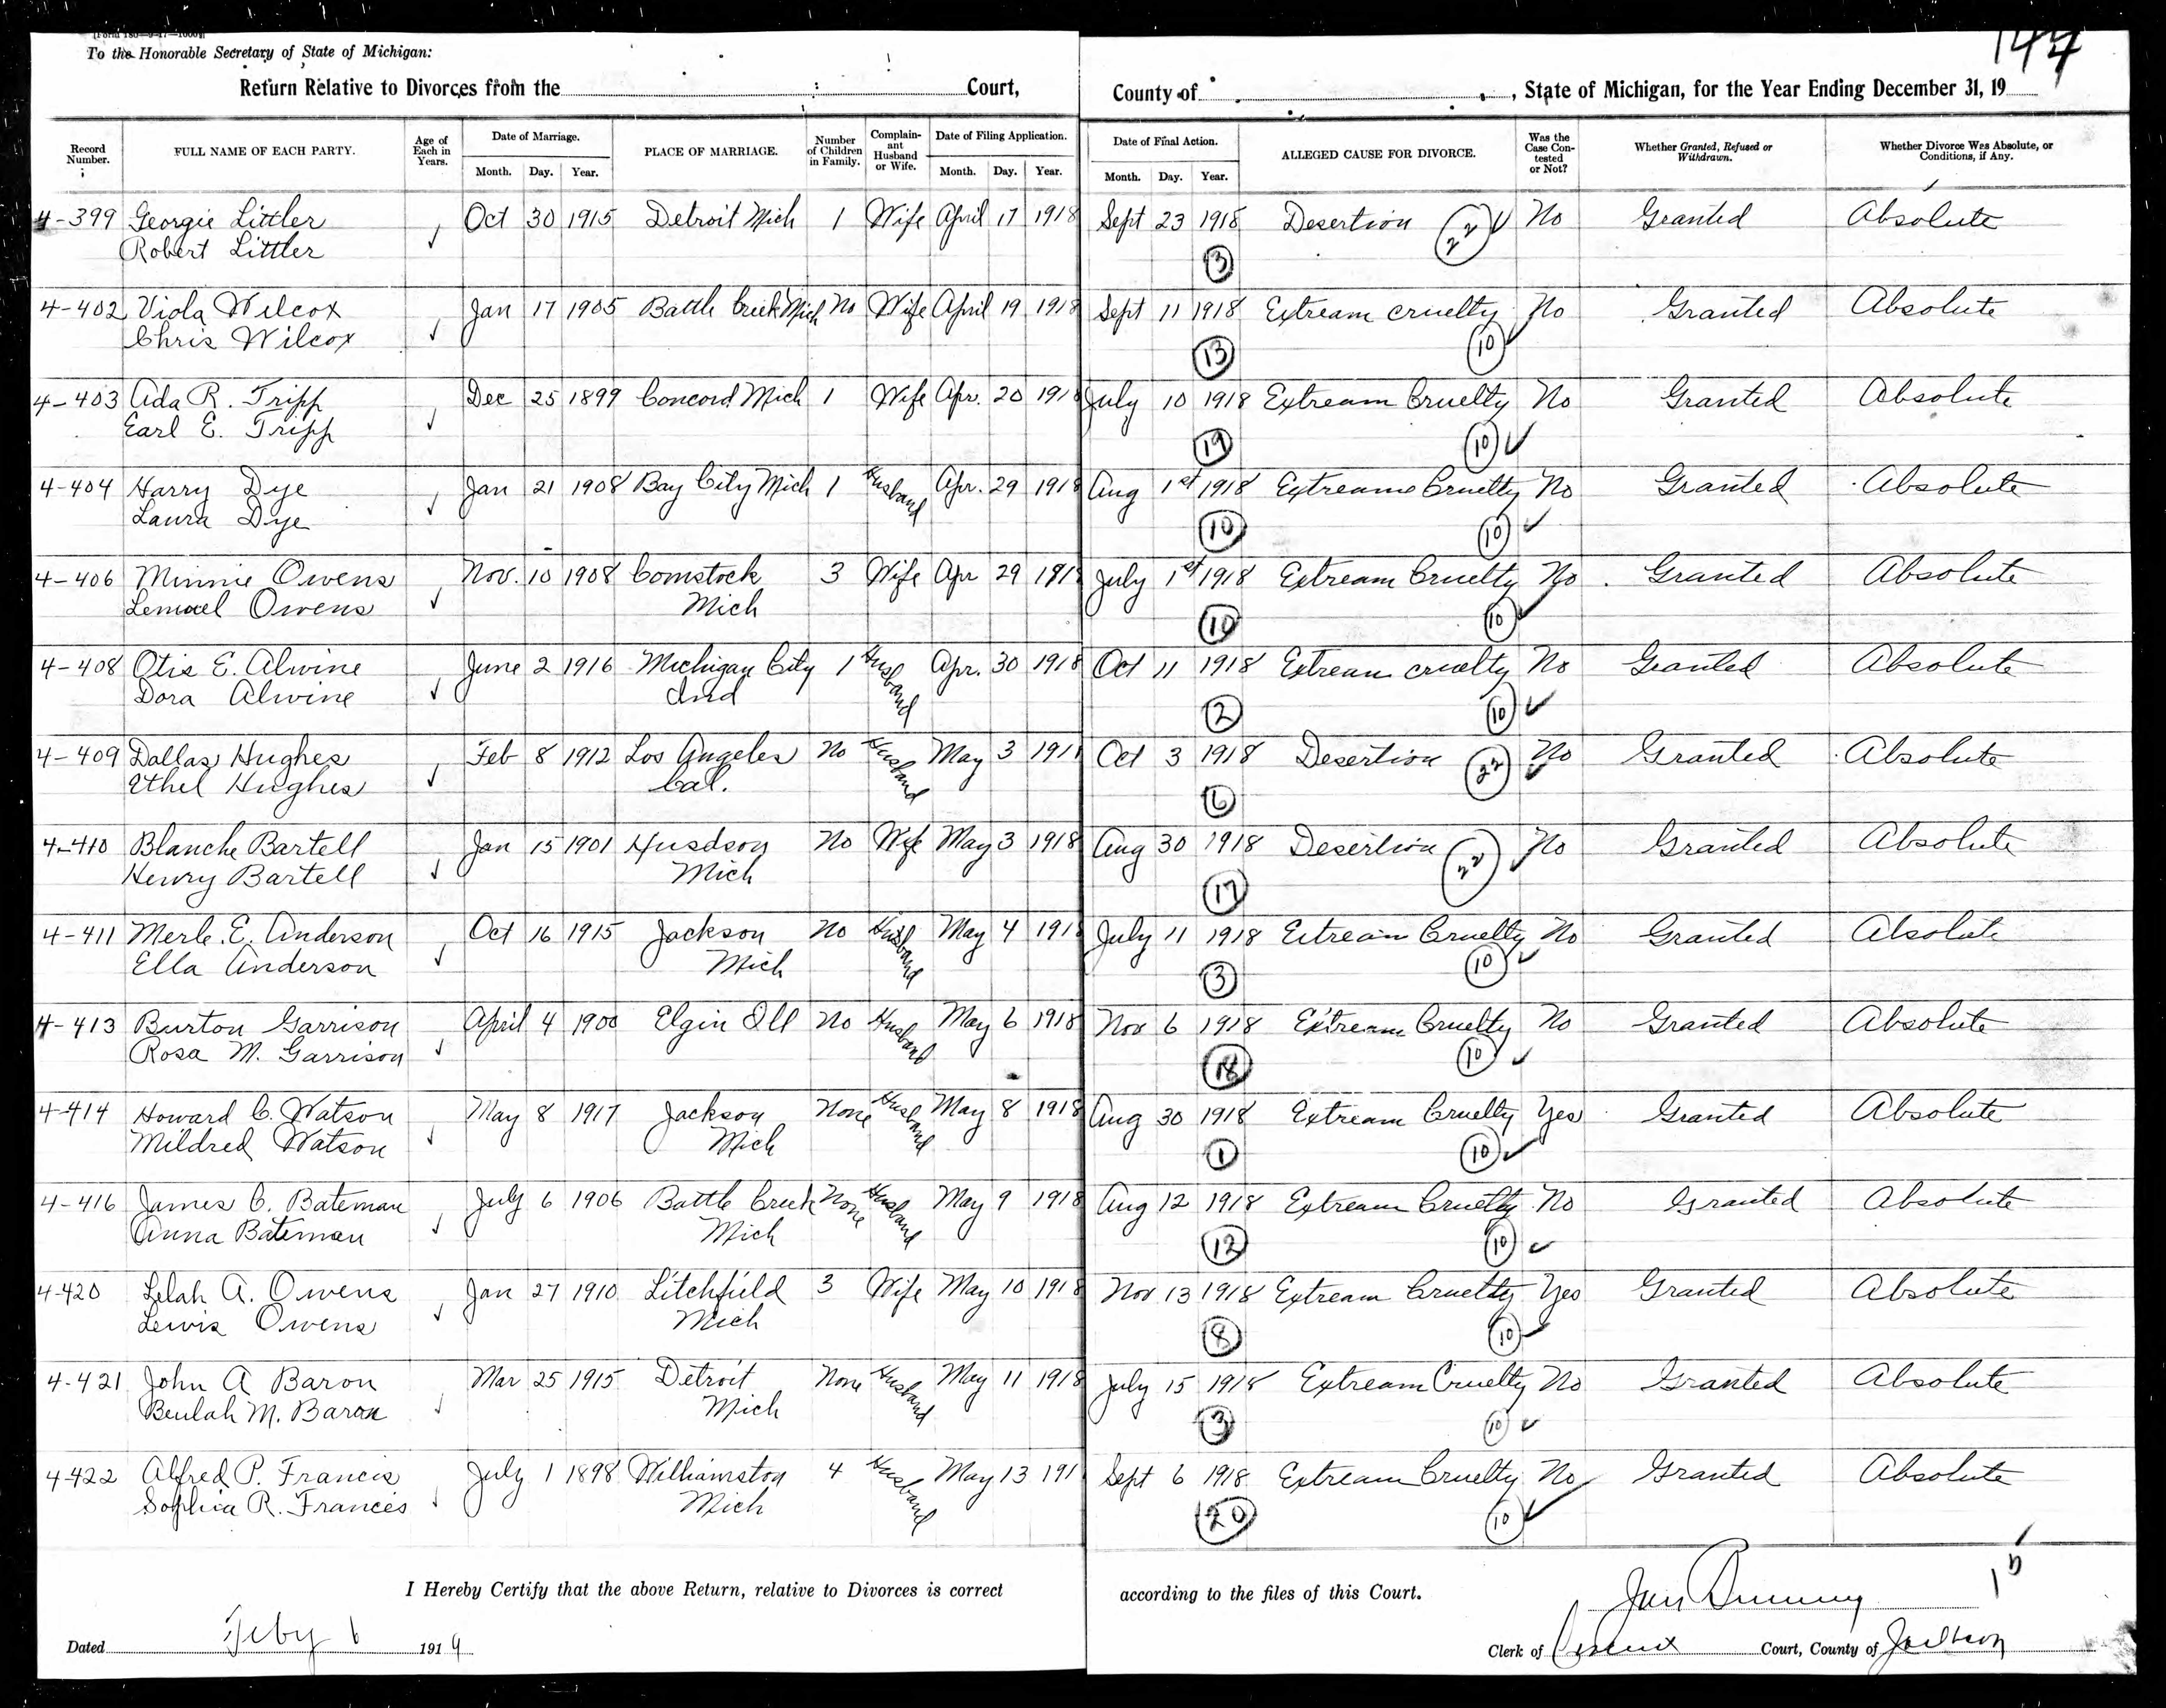 To the Honorable Secretary of State of Michigan:
144
Return Relative to Divorces from the Court, County of , State of Michigan, for the Year Ending December 31, 19
Record Number. FULL NAME OF EACH PARTY. Age of Each in Years. Date of Marriage. Month. Day. Year. PLACE OF MARRIAGE. Number of Children in Family. Complainant Husband or Wife. Date of Filing Application. Month. Day. Year. Date of Final Action. Month. Day. Year. ALLEGED CAUSE FOR DIVORCE. Was the Case Contested or Not? Whether Granted, Refused or Withdrawn. Whether Divorce Was Absolute, or Conditions, if Any.
4-399 Georgie Littler Oct 30 1915 Detroit Mich 1 Wife April 17 1918 Sept 23 1918 Desertion 22 No Granted Absolute
Robert Littler 3
4-402 Viola Wilcox Jan 17 1905 Battle Creek Mich No Wife April 19 1918 Sept 11 1918 Extream cruelty No Granted Absolute
Chris Wilcox 13 10
4-403 Ada R. Tripp Dec 25 1899 Concord Mich 1 Wife Apr. 20 1918 July 10 1918 Extream Cruelty No Granted Absolute
Earl E. Tripp 19 10
4-404 Harry Dye Jan 21 1908 Bay City Mich 1 Husband Apr. 29 1918 Aug 1st 1918 Extreame Cruelty No Granted Absolute
Laura Dye 10 10
4-406 Minnie Owens Nov. 10 1908 Comstock 3 Wife Apr 29 1918 July 1st 1918 Extream Cruelty No Granted Absolute
Lemuel Owens Mich 10 10
4-408 Otis E. Alwine June 2 1916 Michigan City 1 Husband Apr. 30 1918 Oct 11 1918 Extream cruelty No Granted Absolute
Dora Alwine Ind 2 10
4-409 Dallas Hughes Feb 8 1912 Los Angeles No Husband May 3 1918 Oct 3 1918 Desertion 22 No Granted Absolute
Ethel Hughes Cal. 6
4-410 Blanche Bartell Jan 15 1901 Husdson No Wife May 3 1918 Aug 30 1918 Desertion 22 No Granted Absolute
Henry Bartell Mich 17
4-411 Merle E. Anderson Oct 16 1915 Jackson No Husband May 4 1918 July 11 1918 Extream Cruelty No Granted Absolute
Ella Anderson Mich 3 10
4-413 Burton Garrison April 4 1900 Elgin Ill No Husband May 6 1918 Nov 6 1918 Extream Cruelty No Granted Absolute
Rosa M. Garrison 18 10
4-414 Howard C. Watson May 8 1917 Jackson None Husband May 8 1918 Aug 30 1918 Extream Cruelty Yes Granted Absolute
Mildred Watson Mich 1 10
4-416 James C. Bateman July 6 1906 Battle Creek None Husband May 9 1918 Aug 12 1918 Extream Cruelty No Granted Absolute
Anna Bateman Mich 12 10
4-420 Lelah A. Owens Jan 27 1910 Litchfield 3 Wife May 10 1918 Nov 13 1918 Extream Cruelty Yes Granted Absolute
Lewis Owens Mich 8 10
4-421 John A Baron Mar 25 1915 Detroit None Husband May 11 1918 July 15 1918 Extream Cruelty No Granted Absolute
Beulah M. Baron Mich 3 10
4-422 Alfred P. Francis July 1 1898 Williamston 4 Husband May 13 191 Sept 6 1918 Extream Cruelty No Granted Absolute
Sophia R. Francis Mich 20 10
15
I Hereby Certify that the above Return, relative to Divorces is correct according to the files of this Court.
Dated Feby 6 1919 Clerk of Circuit Court, County of Jackson